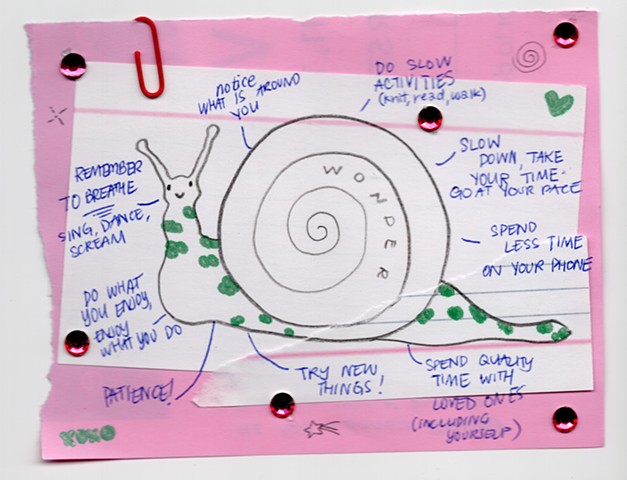 notice
WHAT IS AROUND
YOU
DO SLOW
ACTIVITIES
(knit, read, walk)
REMEMBER
TO BREATHE
SING, DANCE,
SCREAM
WONDER
SLOW
DOWN, TAKE
YOUR TIME-
GO AT YOUR PACE
SPEND
LESS TIME
ON YOUR PHONE
DO WHAT
YOU ENJOY,
ENJOY
WHAT YOU DO
PATIENCE!
TRY NEW
THINGS!
SPEND QUALITY
TIME WITH
LOVED ONES
(INCLUDING
YOURSELF)
XOXO